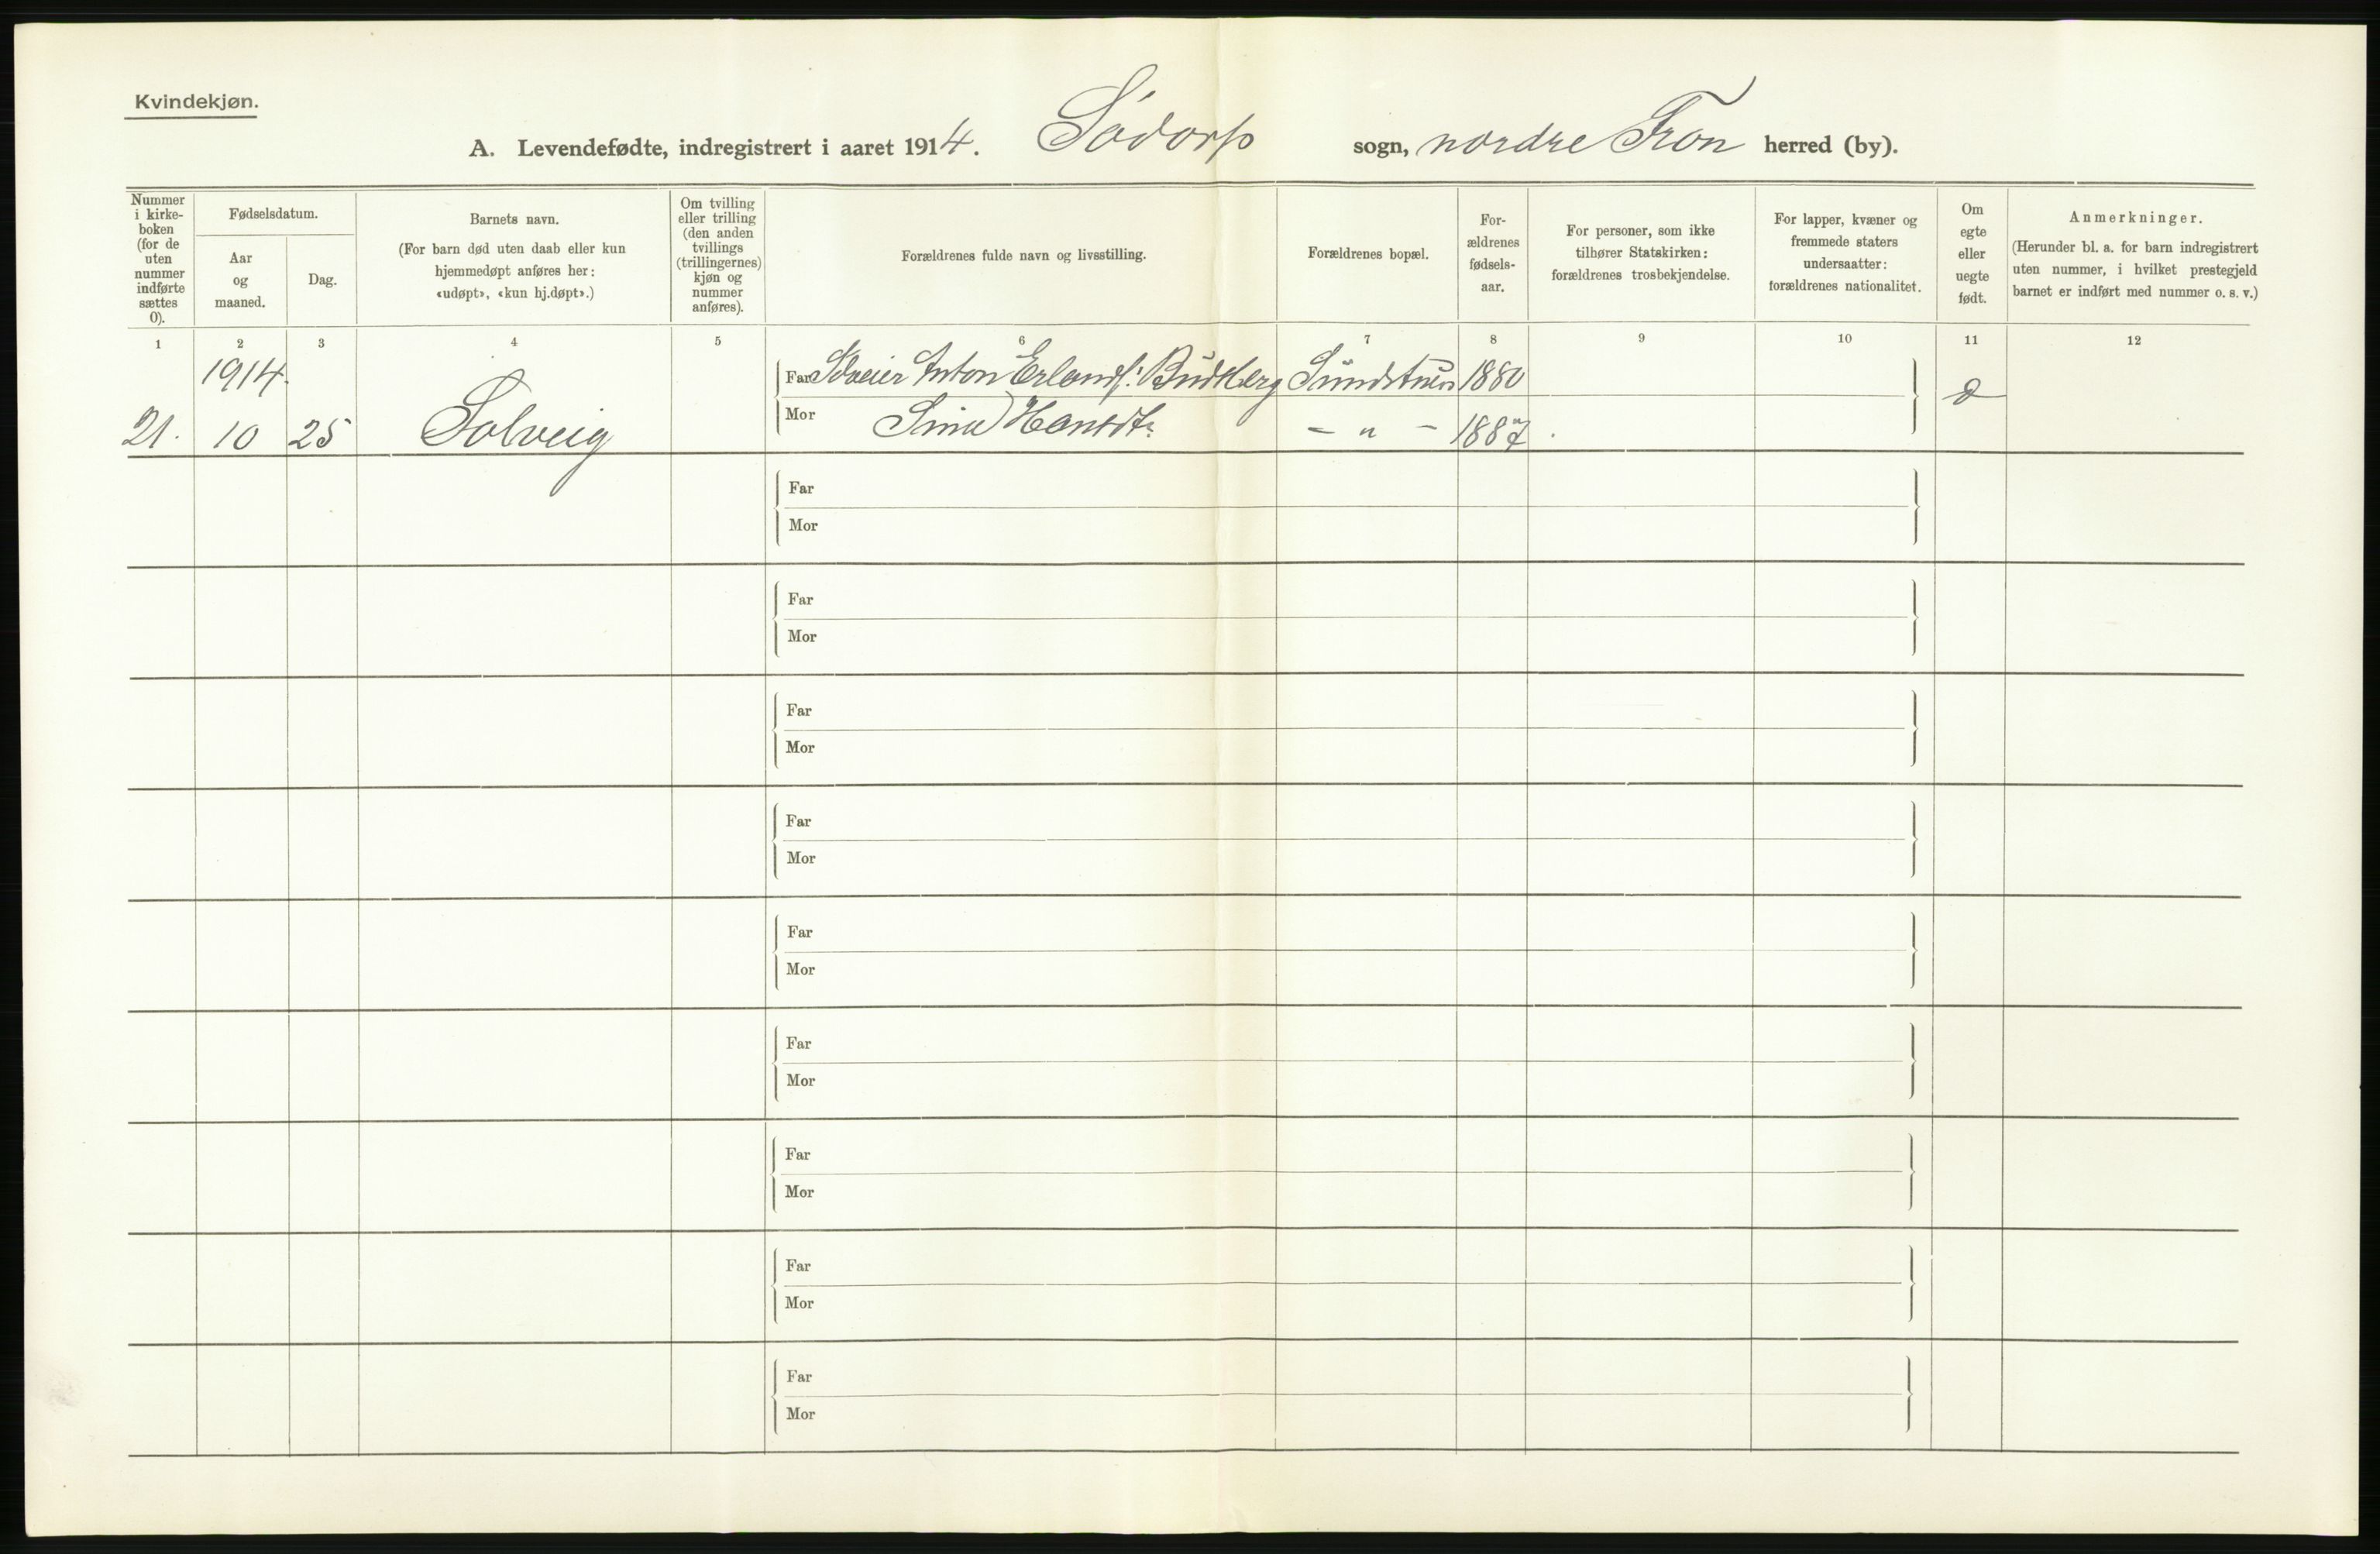 Kvindekjøn.
A. Levendefødte, indregistrert i aaret 1914. Sødorp sogn, nordre Fron herred (by).
Nummer i kirke-boken (for de uten nummer indførte sættes 0).
Fødselsdatum.
Aar og maaned.
Dag.
Barnets navn.
(For barn død uten daab eller kun hjemmedøpt anføres her: «udøpt», «kun hj.døpt».)
Om tvilling eller trilling (den anden tvillings (trillingernes) kjøn og nummer anføres).
Forældrenes fulde navn og livsstilling.
Forældrenes bopæl.
For-ældrenes fødsels-aar.
For personer, som ikke tilhører Statskirken: forældrenes trosbekjendelse.
For lapper, kvæner og fremmede staters undersaatter: forældrenes nationalitet.
Om egte eller uegte født.
Anmerkninger.
(Herunder bl. a. for barn indregistrert uten nummer, i hvilket prestegjeld barnet er indført med nummer o. s. v.)
1 2 3 4 5 6 7 8 9 10 11 12
1914. Far Anton Erlands. Budkberg 1880
21. 10 25 Solveig Mor Hansdt. - " - 1887
Far
Mor
Far
Mor
Far
Mor
Far
Mor
Far
Mor
Far
Mor
Far
Mor
Far
Mor
Far
Mor